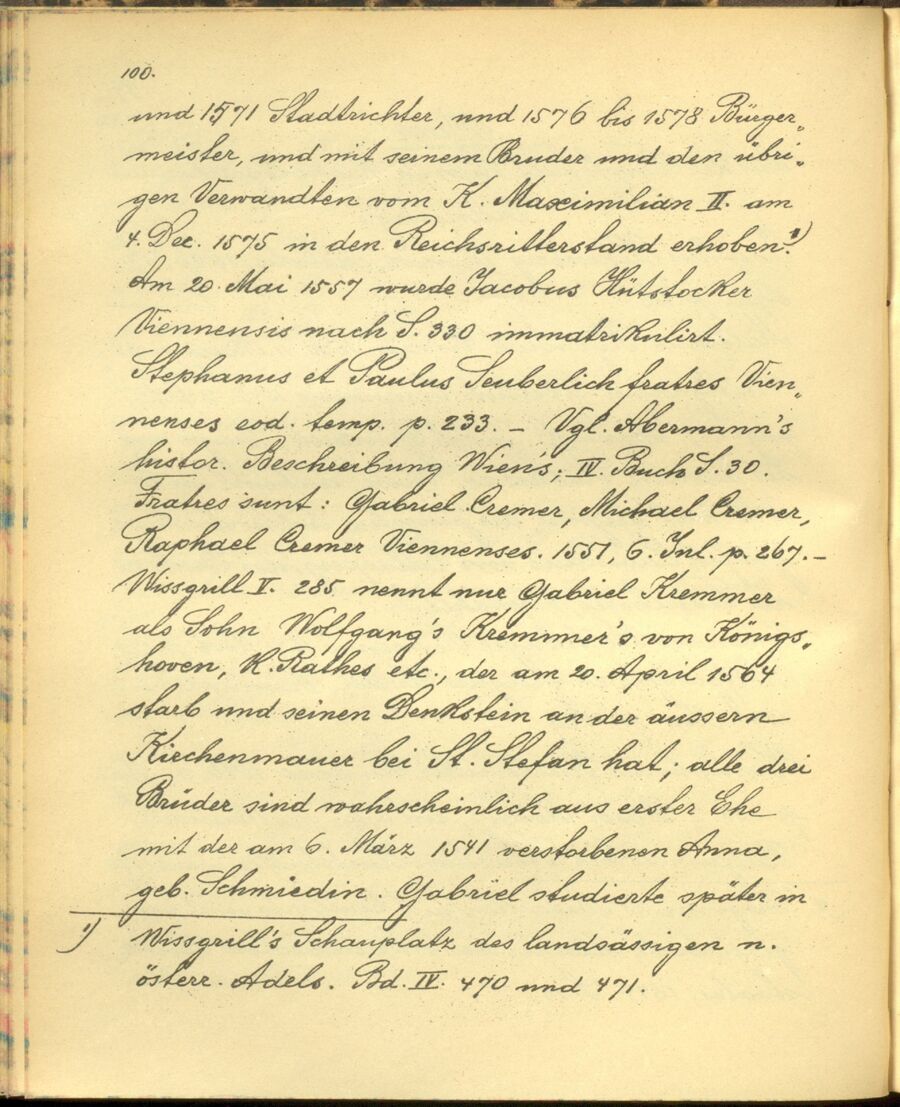 100.
und 1571 Stadtrichter, und 1576 bis 1578 Bürger„
meister, und mit seinem Bruder und den übri„
gen Verwandten vom K. Maximilian II. am
4. Dec. 1575 in den Reichsritterstand erhoben.¹)
Am 20. Mai 1557 wurde Jacobus Hütstocker
Viennensis nach S. 330 immatrikulirt.
Stephanus et Paulus Seuberlich fratres Vien„
nenses eod. temp. p. 233. – Vgl. Abermann's
histor. Beschreibung Wien's; IV. Buch S. 30.
Fratres sunt: Gabriel Cremer, Michael Cremer,
Raphael Cremer Viennenses. 1551, 6. Jul. p. 267. –
Wissgrill V. 285 nennt nur Gabriel Kremmer
als Sohn Wolfgang's Kremmer's von Königs„
hoven, K. Rathes etc., der am 20. April 1564
starb und seinen Denkstein an der äussern
Kirchenmauer bei St. Stefan hat; alle drei
Brüder sind wahrscheinlich aus erster Ehe
mit der am 6. März 1541 verstorbenen Anna,
geb. Schmiedin. Gabriel studierte später in
¹) Wissgrill's Schauplatz des landsässigen n.
österr. Adels. Bd. IV. 470 und 471.